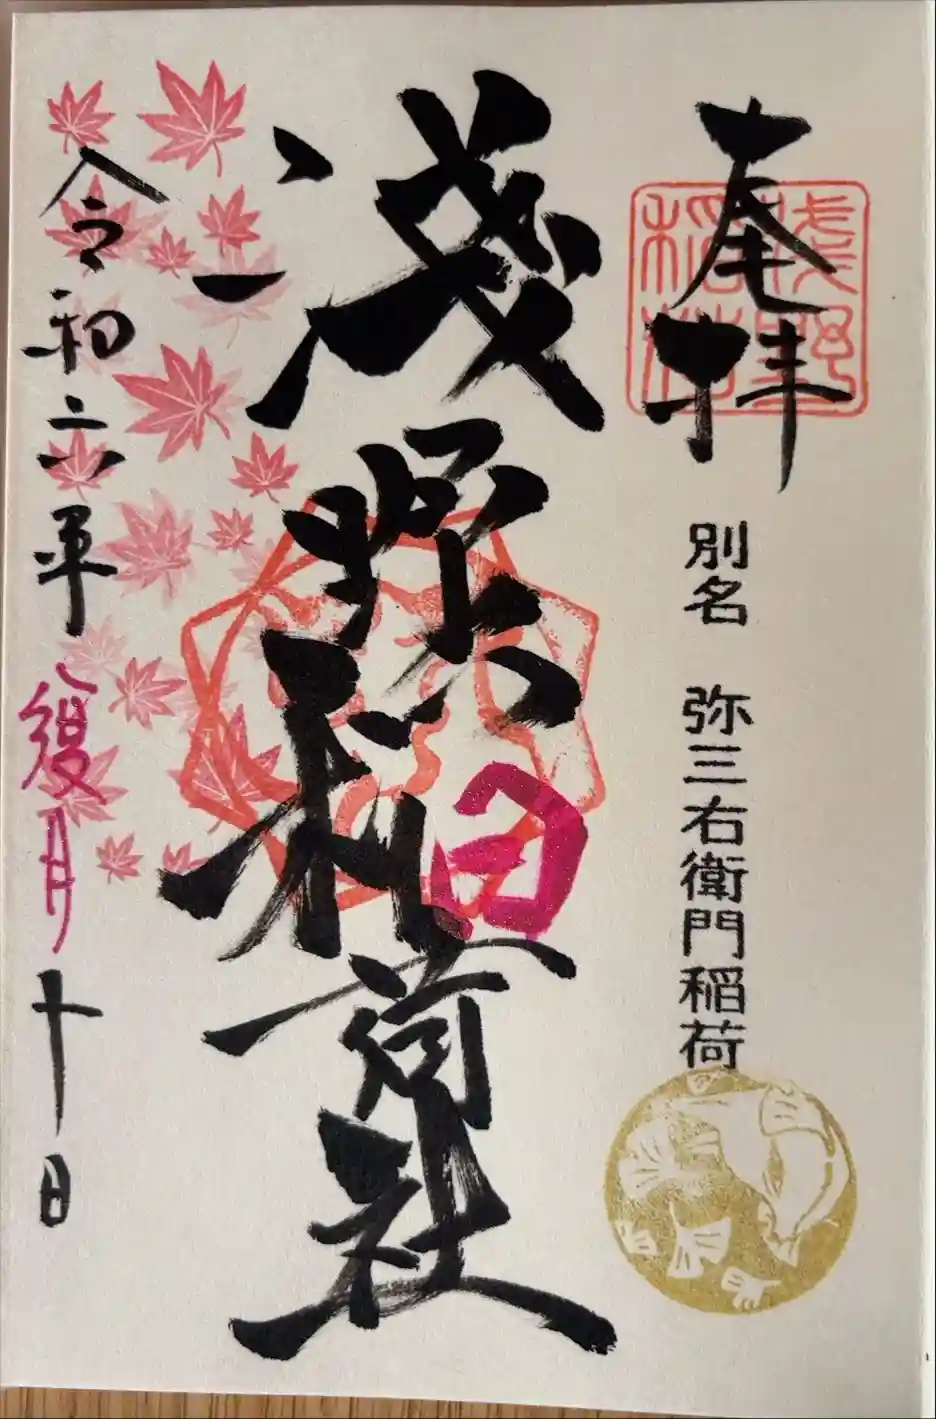 奉拝
浅野
稲荷
別名　弥三右衛門稲荷
淺野稲荷社
令和六年復月十日